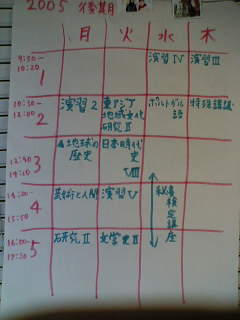 2005 後期
月 火 水 木
9:00-
10:20
1
演習Ⅳ 演習Ⅲ
10:30-
12:00
2
演習2
東アジア
地域文化
研究Ⅱ
ポルトガル
語
特殊講議
12:40
14:10
3
地球の
歴史
日本時代
史
Ⅷ
4
芸術と人間
演習Ⅴ
秘書
検定講
座
16:00-
17:30
5
研究Ⅱ
文学史Ⅱ